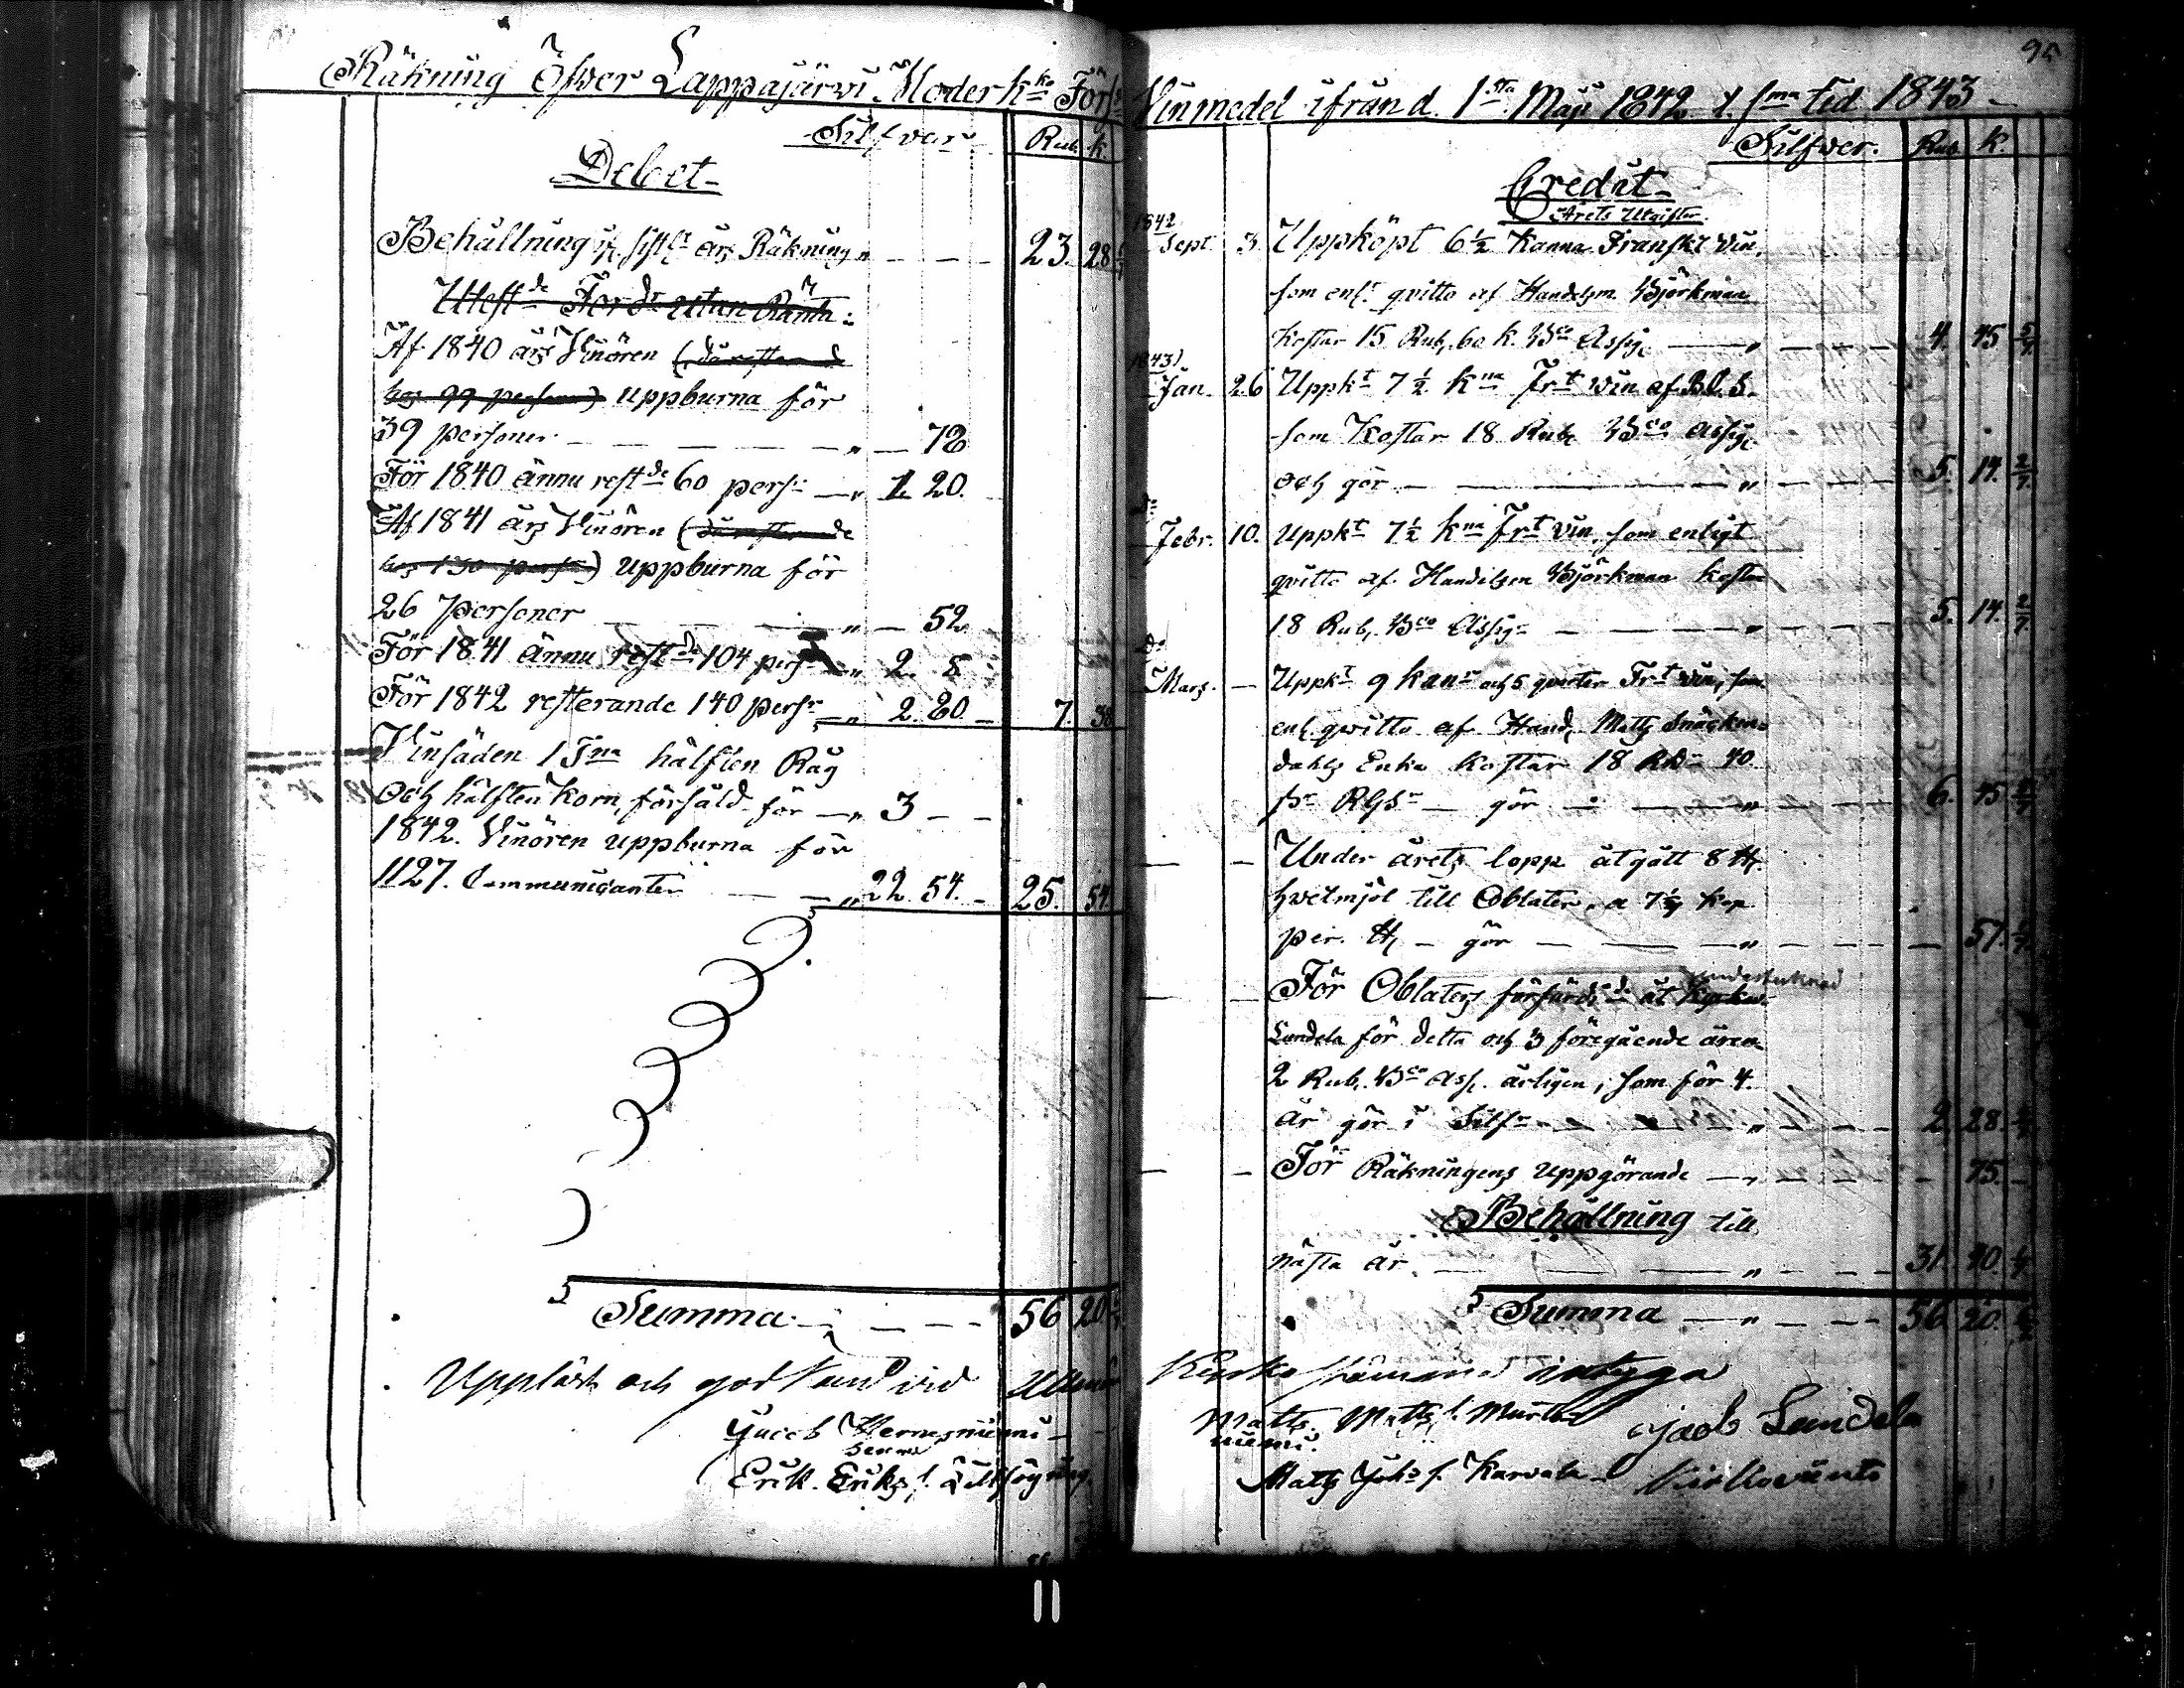 Räkning Öfwer Lappajärwi Moder k:ko Förs:
Silfver Rub. k.
Debet
Behållning if. sistl:t års Räkning „ 23. 28
Utest:de Ford:r utan Ränta:
Af 1840 års Vinören (
99 personer) uppburna för
39 personer „ 78
För 1840 ännu rest:de 60 pers: „ 1. 20.
Af 1841 års Vinören (
130 pers:) uppburna för
26 Personer „ 52
För 1841 ännu rest:de 104 pers: „ 2. 8
För 1842 resterande 140 pers: „ 2. 80 7. 38
Vinsäden 1 T:na hälften Råg
och hälften Korn, försåld för „ 3
1842. Vinören uppburna för
1127. Communicanter „ 22. 54. 25. 54.
Summa 56 20
Uppläst och godkänd vid Allmän
Jacob Hernesniemi
Erik Eriks s.
95
Vinmedel ifrån d. 1:sta Maji 1842 t. s:ma tid 1843
Silfwer. Rub. k.
Credit
Årets Utgifter.
1842
Sept. 3. Uppköpt 6½ Kanna Franskt Vin,
som enl:t qvitto af Handelsm. Björkman
kostar 15 Rub. 60 k. B:co Assig. „ 4. 45 5/7.
1843
Jan. 26 Uppk:t 7½ k:na Fr:t Vin af
som Kostar 18 Rub. B:co Assig.
och gör „ 5. 14. 2/7.
D:o
Febr. 10. Uppk:t 7½ k:na Fr:t Vin, som enligt
qvitto af Handelsm Björkman kostar
18 Rub. B:co Assig: „ 5. 14. 2/7.
D:o
Mars. Uppk:t 9 kan:r och 5 qvarter Fr:t Vin, som
enl. qvitto af Hand. Matts
dahls Enka kostar 18 40
gör „ 6. 45
Under årets lopp åtgått 8 ℔
hvetmjöl till Oblater, a 7 1/7 kop
per ℔ gör „ 57. 1/7
För Oblaters förfärdig:de åt undertecknad
Lundela för detta och 3 föregående åren
2 Rub. B:co ass. årligen, som för 4.
år gör i Silf:r „ 2. 28.
För Räkningens uppgörande „ 75.
Behållning till
nästa år „ 31. 40.
Summa „ 56 20.
Kyrko stämma intyga
Matts Matts s.
niemi.
Jacob Lundela
Matts Joh: s. Karvala